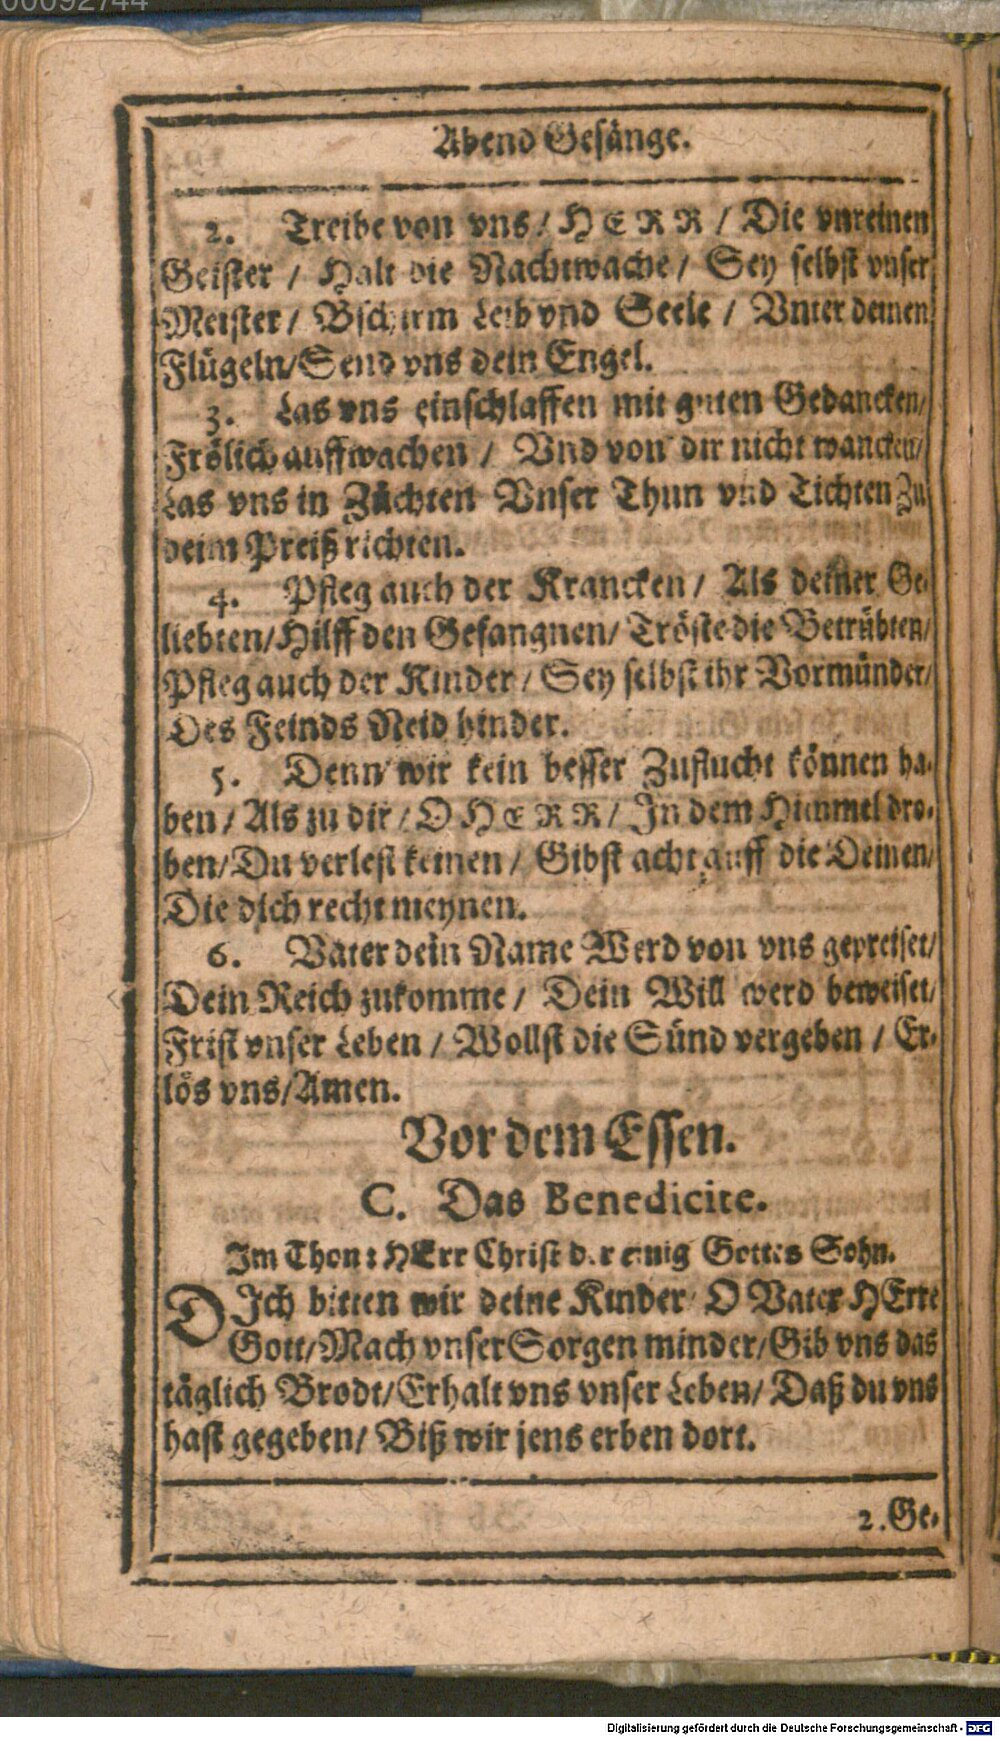 00092744
Abend Gesänge.
2. Treibe von vns / HERR / Die vnreinen
Geister / Halt die Nachtwache / Sey selbst vnser
Meister / Bschirm Leib vnd Seele / Vnter deinen
Flügeln/Send vns dein Engel.
3. Las vns einschlaffen mit guten Gedancken/
Frölich auffwachen / Vnd von dir nicht wancken/
Las vns in Züchten Vnser Thun vnd Tichten Zu
deim Preiß richten.
4. Pfleg auch der Krancken / Als deiner Ge-
liebten/Hilff den Gefangnen/ Tröste die Betrübten/
Pfleg auch der Kinder / Sey selbst ihr Vormünder/
Des Feinds Neid hinder.
5. Denn wir kein besser Zuflucht können ha-
ben / Als zu dir / O HERR / In dem Himmel dro-
ben/Du verlest keinen / Gibst acht auff die Deinen/
Die dich recht meynen.
6. Vater dein Name Werd von vns gepreiset/
Dein Reich zukomme / Dein Will werd beweiset/
Frist vnser Leben / Wollst die Sünd vergeben / Er-
lös vns/Amen.
Vor dem Essen.
C. Das Benedicite.
Im Thon: HErr Christ der einig Gottes Sohn.
DIch bitten wir deine Kinder O Vater HErre
Gott/Mach vnser Sorgen minder/Gib vns das
täglich Brodt/Erhalt vns vnser Leben/ Daß du vns
hast gegeben/ Biß wir jens erben dort.
2. Ge-
Digitalisierung gefördert durch die Deutsche Forschungsgemeinschaft - DFG